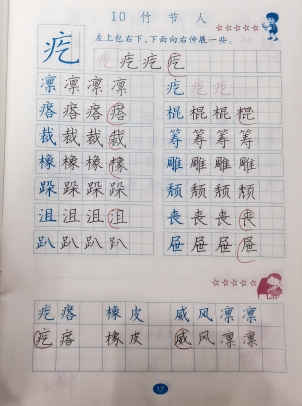 10 竹节人
左上包右下，下面向右伸展一些。
疙 疙 疙 疙 疙
凛 凛 凛 凛 疙 疙 疙
瘩 瘩 瘩 瘩 棍 棍 棍 棍
裁 裁 裁 裁 筹 筹 筹 筹
橡 橡 橡 橡 雕 雕 雕 雕
跺 跺 跺 跺 颓 颓 颓 颓
沮 沮 沮 沮 丧 丧 丧 丧
趴 趴 趴 趴 屉 屉 屉 屉
疙 瘩 橡 皮 威 风 凛 凛
疙 瘩 橡 皮 威 风 凛 凛
17